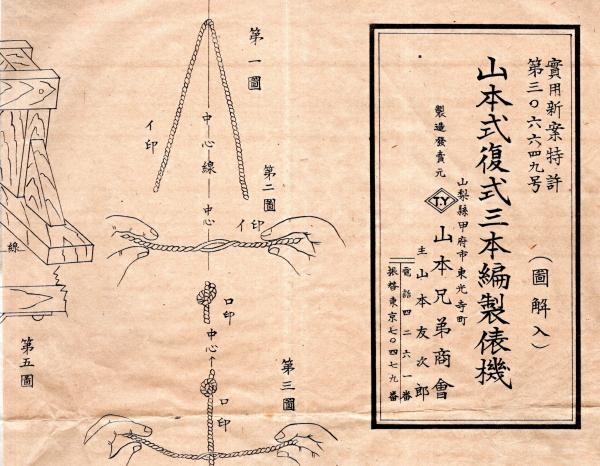 實用新案特許
第三〇六六四九号
山本式復式三本編製俵機
(圖解入)
製造發賣元
J.Y
山本兄弟商會
山梨縣甲府市東光寺町
主 山本友次郎
電話四二六一番
振替東京七〇四七九番
第一圖
イ印
中心線
第二圖
中心
イ印
ロ印
中心
第三圖
ロ印
線
第五圖